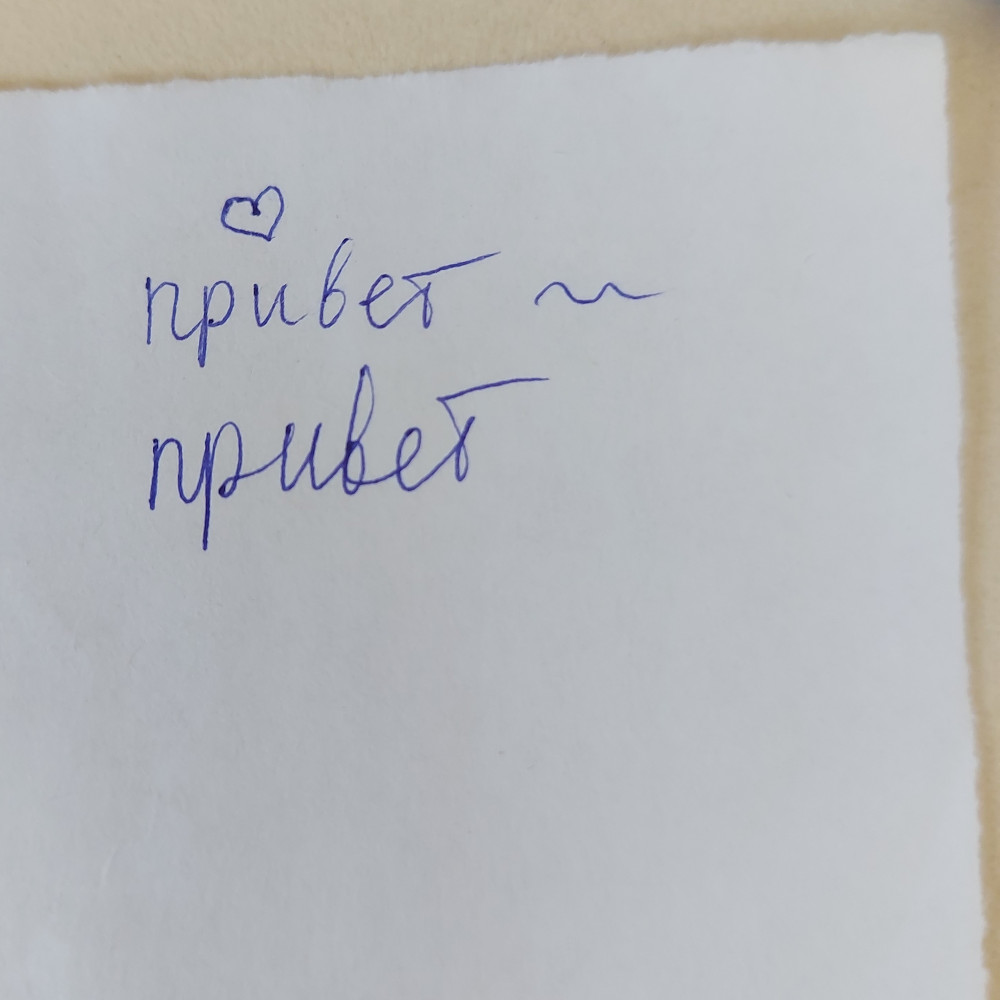 привет ~~
привет